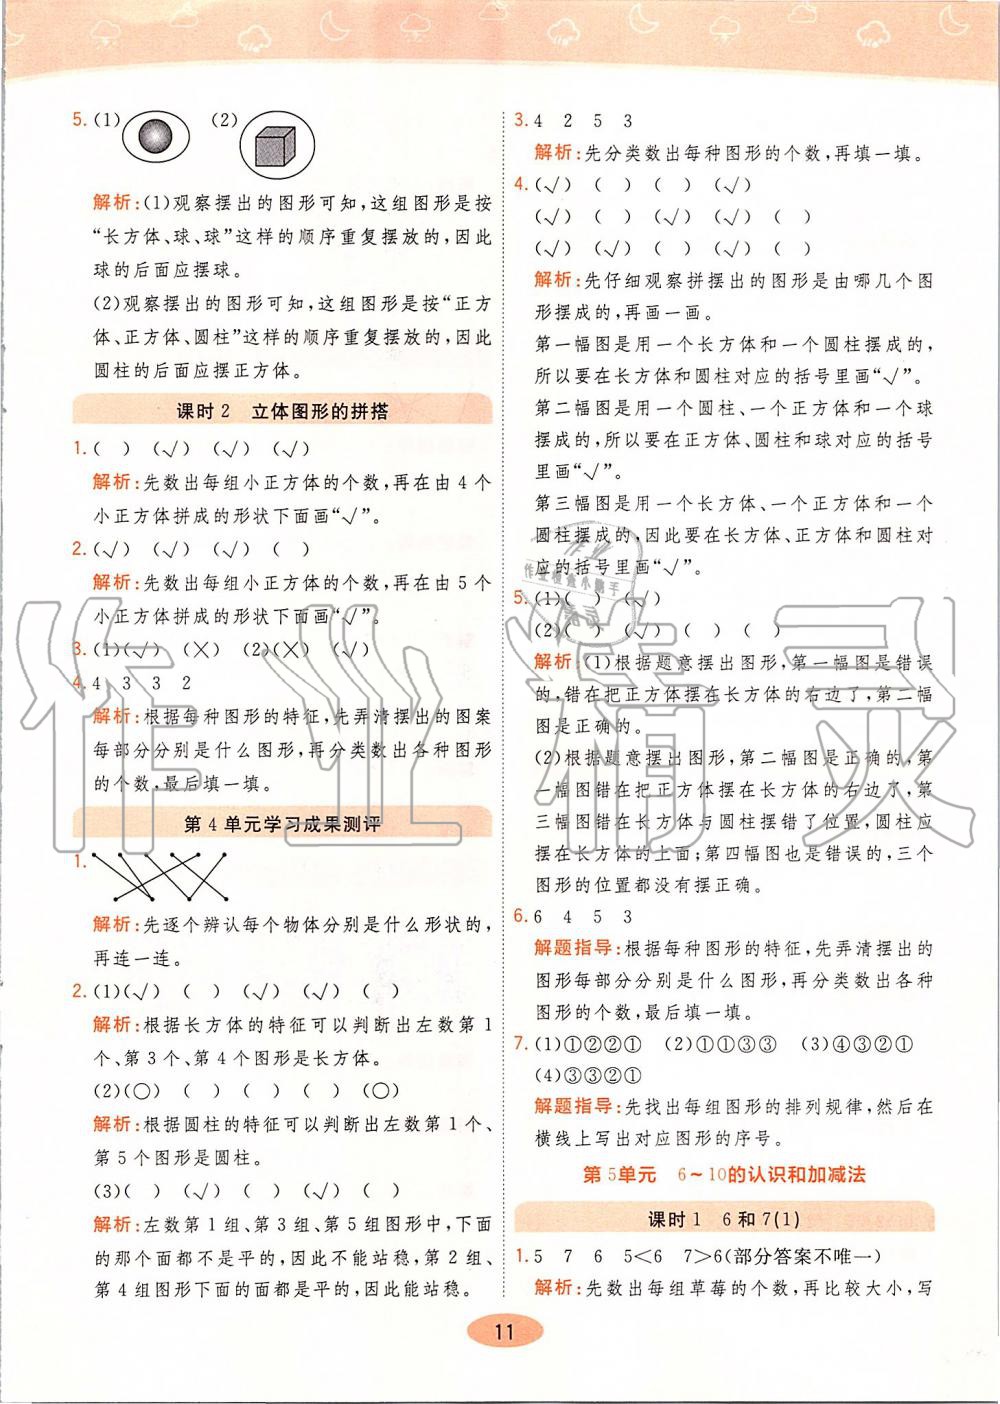 5.(1) (2)
解析:(1)观察摆出的图形可知,这组图形是按
“长方体、球、球”这样的顺序重复摆放的,因此
球的后面应摆球。
(2)观察摆出的图形可知,这组图形是按“正方
体、正方体、圆柱”这样的顺序重复摆放的,因此
圆柱的后面应摆正方体。
课时2 立体图形的拼搭
1.( ) (√) (√) (√)
解析:先数出每组小正方体的个数,再在由4个
小正方体拼成的形状下面画“√”。
2.(√) (√) (√) ( )
解析:先数出每组小正方体的个数,再在由5个
小正方体拼成的形状下面画“√”。
3.(1)(√) (×) (2)(×) (√)
4.4 3 3 2
解析:根据每种图形的特征,先弄清摆出的图案
每部分分别是什么图形,再分类数出各种图形
的个数,最后填一填。
第4单元学习成果测评
1.
解析:先逐个辨认每个物体分别是什么形状的,
再连一连。
2.(1)(√) ( ) (√) (√) ( )
解析:根据长方体的特征可以判断出左数第1
个、第3个、第4个图形是长方体。
(2)(○) ( ) ( ) ( ) (○)
解析:根据圆柱的特征可以判断出左数第1个、
第5个图形是圆柱。
(3)( ) (√) ( ) (√) ( )
解析:左数第1组、第3组、第5组图形中,下面
的那个面都不是平的,因此不能站稳,第2组、
第4组图形下面的面都是平的,因此能站稳。
3.4 2 5 3
解析:先分类数出每种图形的个数,再填一填。
4.(√) ( ) ( ) (√)
(√) ( ) (√) (√) ( )
( ) (√) (√) (√) ( )
解析:先仔细观察拼摆出的图形是由哪几个图
形摆成的,再画一画。
第一幅图是用一个长方体和一个圆柱摆成的,
所以要在长方体和圆柱对应的括号里画“√”。
第二幅图是用一个圆柱、一个正方体和一个球
摆成的,所以要在正方体、圆柱和球对应的括号
里画“√”。
第三幅图是用一个长方体、一个正方体和一个
圆柱摆成的,因此要在长方体、正方体和圆柱对
应的括号里画“√”。
5.(1)( ) (√)
(2)( ) (√) ( ) ( )
解析:(1)根据题意摆出图形,第一幅图是错误
的,错在把正方体摆在长方体的右边了,第二幅
图是正确的。
(2)根据题意摆出图形,第二幅图是正确的,第
一幅图错在把正方体摆在长方体的右边了,第
三幅图错在长方体与圆柱摆错了位置,圆柱应
摆在长方体的上面;第四幅图也是错误的,三个
图形的位置都没有摆正确。
6.6 4 5 3
解题指导:根据每种图形的特征,先弄清摆出的
图形每部分分别是什么图形,再分类数出各种
图形的个数,最后填一填。
7.(1)①②②① (2)①①③③ (3)④③②①
(4)③③②①
解题指导:先找出每组图形的排列规律,然后在
横线上写出对应图形的序号。
第5单元 6~10的认识和加减法
课时1 6和7(1)
1.5 7 6 5<6 7>6(部分答案不唯一)
解析:先数出每组草莓的个数,再比较大小,写
11
作业精灵